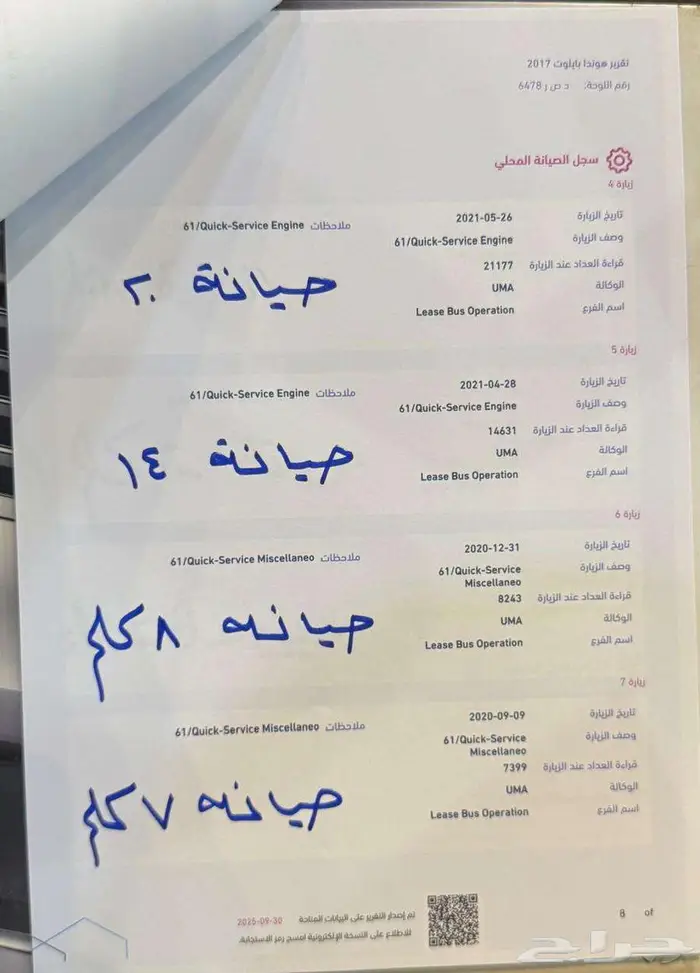 تقرير هوندا بايلوت 2017
رقم اللوحة: د ص ر 6478
سجل الصيانة المحلي
زيارة 4
تاريخ الزيارة 2021-05-26
ملاحظات 61/Quick-Service Engine
وصف الزيارة 61/Quick-Service Engine
قراءة العداد عند الزيارة 21177
الوكالة UMA
اسم الفرع Lease Bus Operation
صيانة ٢٠
زيارة 5
تاريخ الزيارة 2021-04-28
ملاحظات 61/Quick-Service Engine
وصف الزيارة 61/Quick-Service Engine
قراءة العداد عند الزيارة 14631
الوكالة UMA
اسم الفرع Lease Bus Operation
صيانة ١٤
زيارة 6
تاريخ الزيارة 2020-12-31
ملاحظات 61/Quick-Service Miscellaneo
وصف الزيارة 61/Quick-Service
Miscellaneo
قراءة العداد عند الزيارة 8243
الوكالة UMA
اسم الفرع Lease Bus Operation
صيانه ٨ كلم
زيارة 7
تاريخ الزيارة 2020-09-09
ملاحظات 61/Quick-Service Miscellaneo
وصف الزيارة 61/Quick-Service
Miscellaneo
قراءة العداد عند الزيارة 7399
الوكالة UMA
اسم الفرع Lease Bus Operation
صيانه ٧ كلم
8 of
تم إصدار التقرير على البيانات المتاحة 2025-09-30
للاطلاع على النسخة الإلكترونية امسح رمز الاستجابة.
حراج